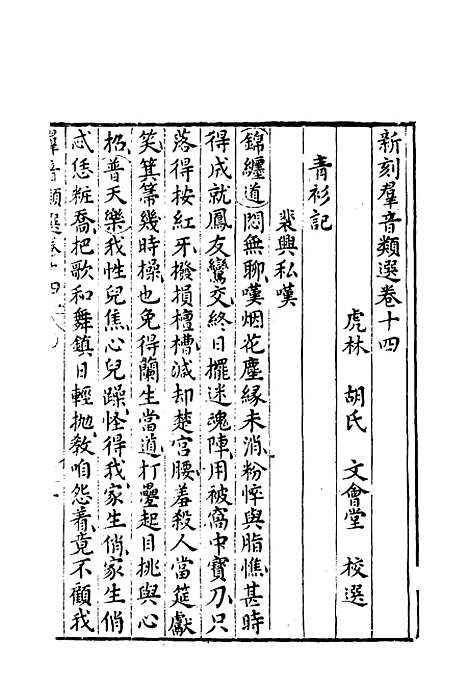 新刻羣音類選卷十四
虎林 胡氏 文會堂 校選
青衫記
裴興私嘆
錦纏道悶無聊嘆烟花塵緣未消粉悴與脂憔甚時
得成就鳳友鸞交終日擺迷魂陣用被窩中寶刀只
落得按紅牙撥損檀槽減却楚宮腰羞殺人當筵獻
笑箕箒幾時操也免得蘭生當道打疊起目挑與心
招普天樂我性兒焦心兒躁怪得我家生俏家生俏
忒恁粧喬把歌和舞鎮日輕拋教咱怨着竟不顧我
羣音類選卷十四